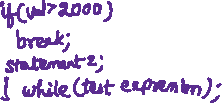 if(val>2000)
break;
statement2;
} while(test expression);